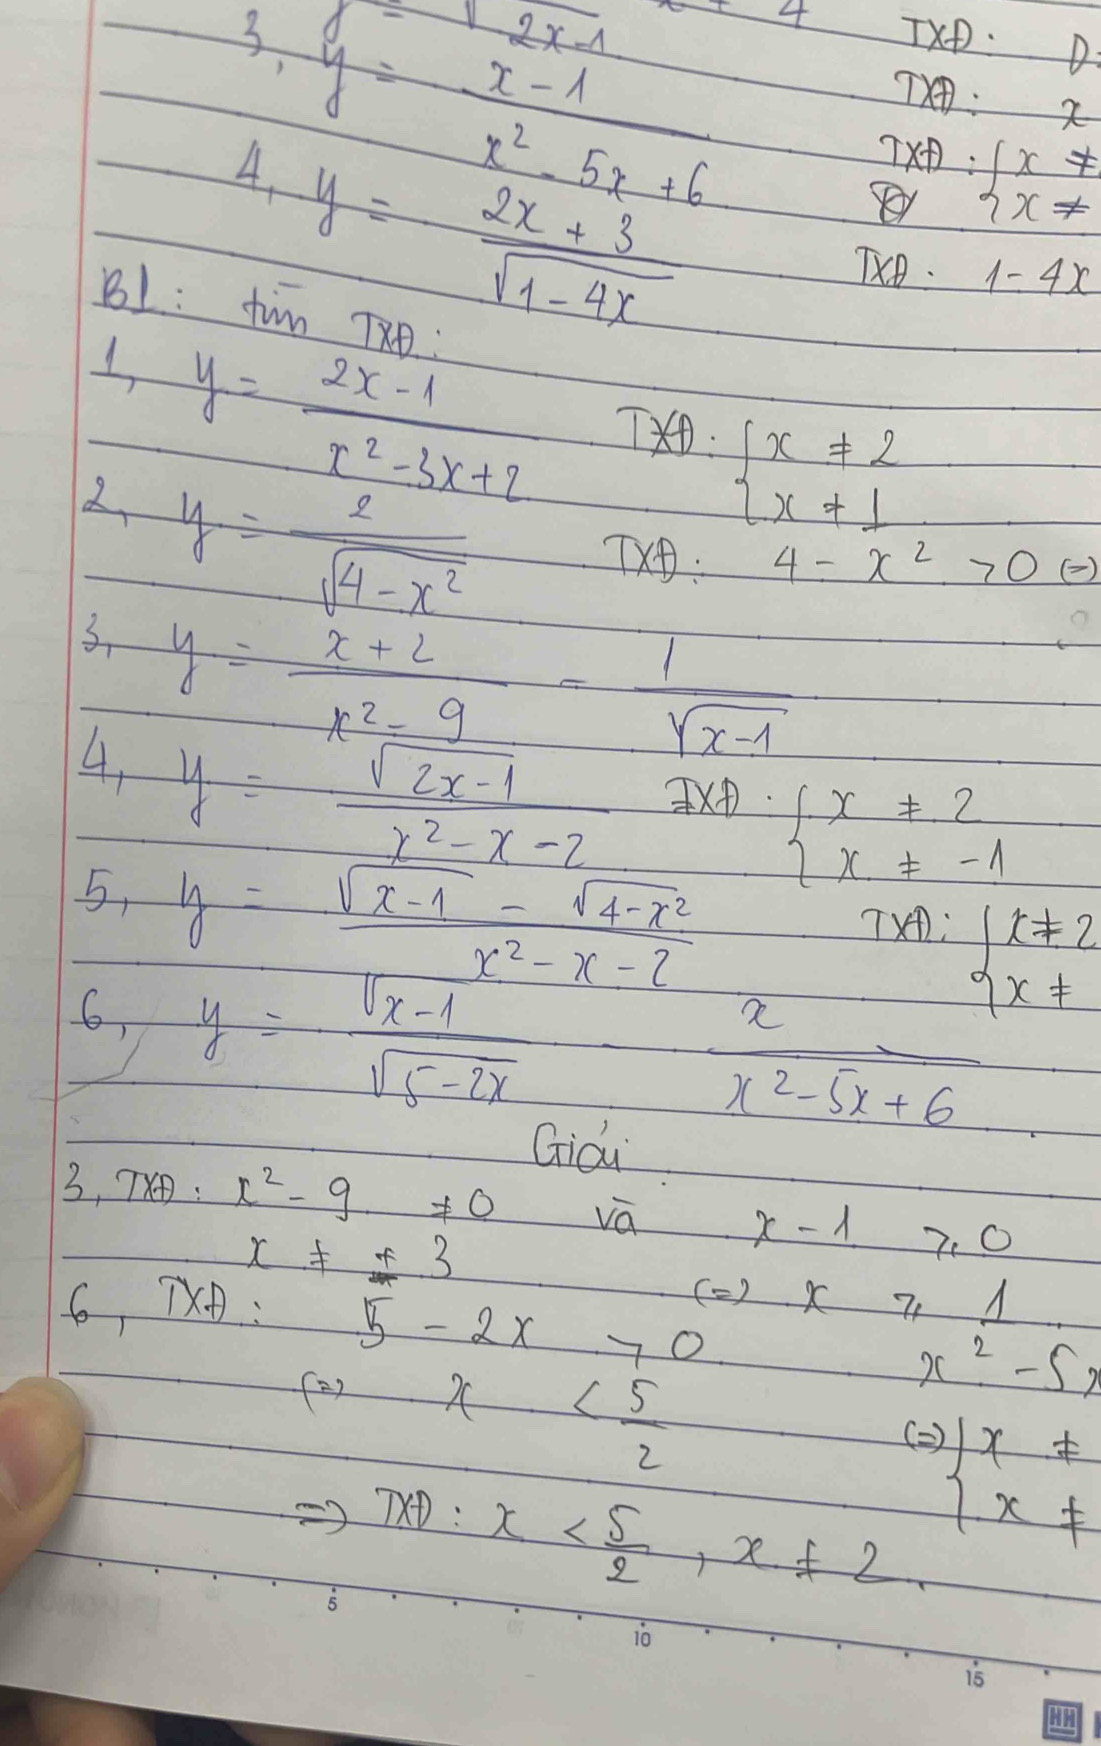 y = √ 2x-1 x + 4 TXĐ: D=
3, y = x - 1 / x² - 5x + 6 TXĐ: x
TXĐ: { x ≠
{ x ≠
4, y = 2x + 3 / √1-4x TXĐ: 1-4x
B1: tìm TXĐ:
1, y = 2x-1 / x²-3x+2 TXĐ: { x ≠ 2
{ x ≠ 1
2, y = 2 / √4-x² TXĐ: 4 - x² > 0 (=)
3, y = x+2 / x²-9 - 1 / √x-1
4, y = √2x-1 / x²-x-2 TXĐ: { x ≠ 2
{ x ≠ -1
5, y = √x-1 - √4-x² / x²-x-2 TXĐ: { x ≠ 2
{ x ≠
6, y = √x-1 / √5-2x - x / x²-5x+6
Giải
3, TXĐ: x²-9 ≠ 0 và x-1 ⩾ 0
x ≠ ± 3 (=) x ⩾ 1
6, TXĐ: 5 - 2x > 0 x² - 5x
(=) x < 5/2 (=) { x ≠
{ x ≠
=> TXĐ: x < 5/2, x ≠ 2.
5 10 15
HH